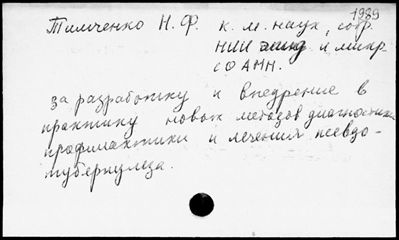 1989
Тимченко Н. Ф. к. м. наук, сотр.
НИИ эпид и микр
СО АМН.
за разработку и внедрение в
практику новых методов диагностики
профилактики и лечения псевдо-
туберкулеза.